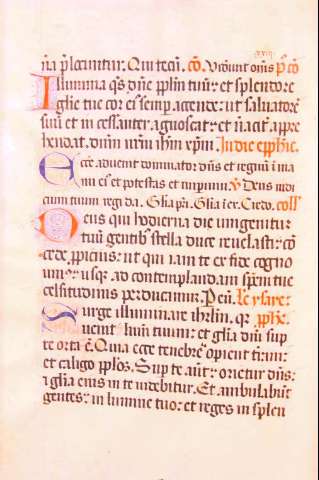 n̄a p̄locuntur. Qui tecū. cō. Viderunt oīns p̄ cō
Illumina q̄s dn̄e pplm̄ tuū: et splendore
glīe tue cor eī semp accende: ut saluatorē
suū et incessanter agnoscat: et appre
hendat. dnm̄ nr̄m ihm̄ xpm̄. In die epphīe.
Ecce aduenit dominator dn̄s et regnū ī ma
nu ei et potestas et imperiū. Deus iudi
cium tuum regi da. Glīa pr̄i. Glīa ī ex. Credo. coll̄
Deus qui hodierna die unigenitū
tuū gentib stella duce reuelasti: cō
cede ppicius: ut qui iam te ex fide cogno
uim: usq: ad contemplandam spēm tue
celsitudinis perducamur. P eū. Le ysaye:
Surge illuminare ihrlm̄. qr pphē:
uenit lumē tuum: et glīa dn̄i sup
te orta ē. Quia ecce tenebrē opient trām:
et caligo pplos. Sup te aūt: orietur dn̄s:
et glīa eius in te uidebitur. Et ambulabūt
gentes: in lumine tuo: et reges in splen